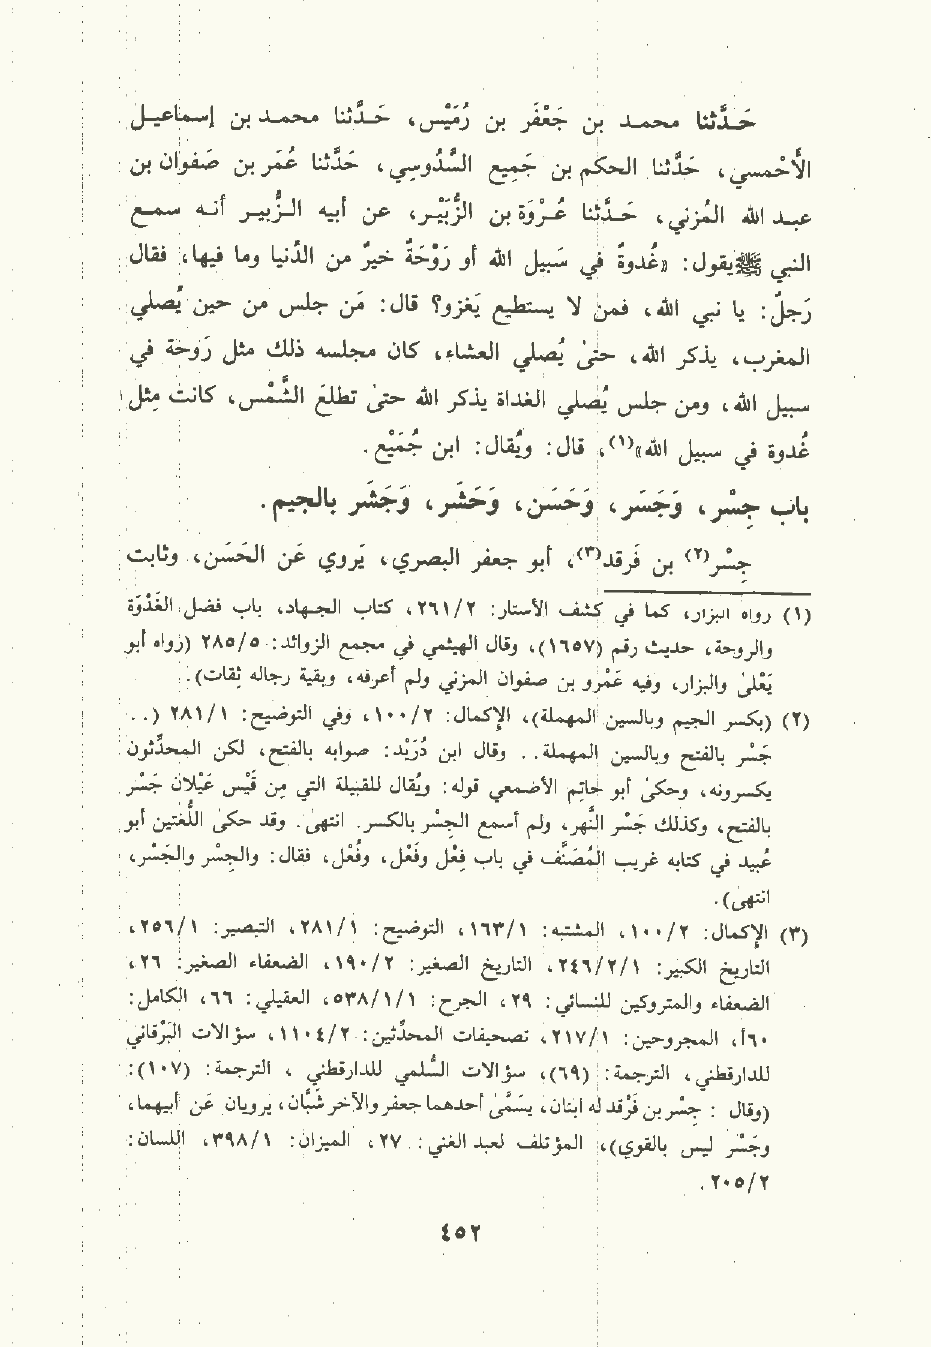 حَـدَّثنا محمـد بن جَعْفَر بن رُمَيْس، حَـدَّثنا محمـد بن إسماعيـل
الأَحْمسي، حَدَّثنا الحكم بن جَمِيع السَّدُوسِي، حَدَّثنا عُمَر بن صَفوان بن
عبـد الله المُزني، حَـدَّثنا عُـرْوَة بن الزُّبَيْـر، عن أبيه الـزُّبيـر أنـه سمـع
النبي ﷺ يقول: «غُدوةٌ في سَبيل الله أو رَوْحَةٌ خيرٌ من الدُنيا وما فيها، فقال
رَجلٌ: يا نبي الله، فمن لا يستطيع يَغزو؟ قال: مَن جلس من حين يُصلي
المغرب، يذكر الله، حتىٰ يُصلي العشاء، كان مجلسه ذلك مثل رَوحة في
سبيل الله، ومن جلس يُصلي الغداة يذكر الله حتىٰ تطلعَ الشَّمْس، كانت مِثل
غُدوة في سبيل الله»(١)، قال: ويُقال: ابن جُمَيْع.
باب جِسْر، وَجَسَر، وَحَسَن، وَحَشَر، وَجَشَر بالجيم.
جِسْر(٢) بن فَرقد(٣)، أبو جعفر البصري، يَروي عَن الحَسَن، وثابت
(١) رواه البزار، كما في كشف الأستار: ٢/٢٦١، كتاب الجهاد، باب فضل الغَدْوَة
والروحة، حديث رقم (١٦٥٧)، وقال الهيثمي في مجمع الزوائد: ٥/٢٨٥ (رواه أبو
يَعْلىٰ والبزار، وفيه عَمْرو بن صفوان المزني ولم أعرفه، وبقية رجاله ثِقات).
(٢) (بكسر الجيم وبالسين المهملة)، الإكمال: ٢/١٠٠، وفي التوضيح: ١/٢٨١ (. .
جَسْر بالفتح وبالسين المهملة. . وقال ابن دُرَيْد: صوابه بالفتح، لكن المحدِّثون
يكسرونه، وحكىٰ أبو حاتِم الأصمعي قوله: ويُقال للقبيلة التي مِن قَيْس عَيْلان جَسْر
بالفتح، وكذلك جَسْر النَّهر، ولم أسمع الجِسْر بالكسر. انتهىٰ. وقد حكىٰ اللُّغتين أبو
عُبيد في كتابه غريب المُصَنَّف في باب فِعْل وفَعْل، وفُعْل، فقال: والجِسْر والجَسْر،
انتهىٰ).
(٣) الإكمال: ٢/١٠٠، المشتبه: ١/١٦٣، التوضيح: ١/٢٨١، التبصير: ١/٢٥٦،
التاريخ الكبير: ١/٢/٢٤٦، التاريخ الصغير: ٢/١٩٠، الضعفاء الصغير: ٢٦،
الضعفاء والمتروكين للنسائي: ٢٩، الجرح: ١/١/٥٣٨، العقيلي: ٦٦، الكامل:
٦٠أ، المجروحين: ١/٢١٧، تصحيفات المحدِّثين: ٢/١١٠٤، سؤالات البَرْقاني
للدارقطني، الترجمة: (٦٩)، سؤالات السُّلمي للدارقطني، الترجمة: (١٠٧):
(وقال: جِسْر بن فَرْقد له ابنان، يسَمَّىٰ أحدهما جعفر والآخر شَبَّان، يرويان عَن أبيهما،
وجَسْر ليس بالقوي)، المؤتلف لعبد الغني: ٢٧، الميزان: ١/٣٩٨، اللسان:
٢/٢٠٥.
٤٥٢